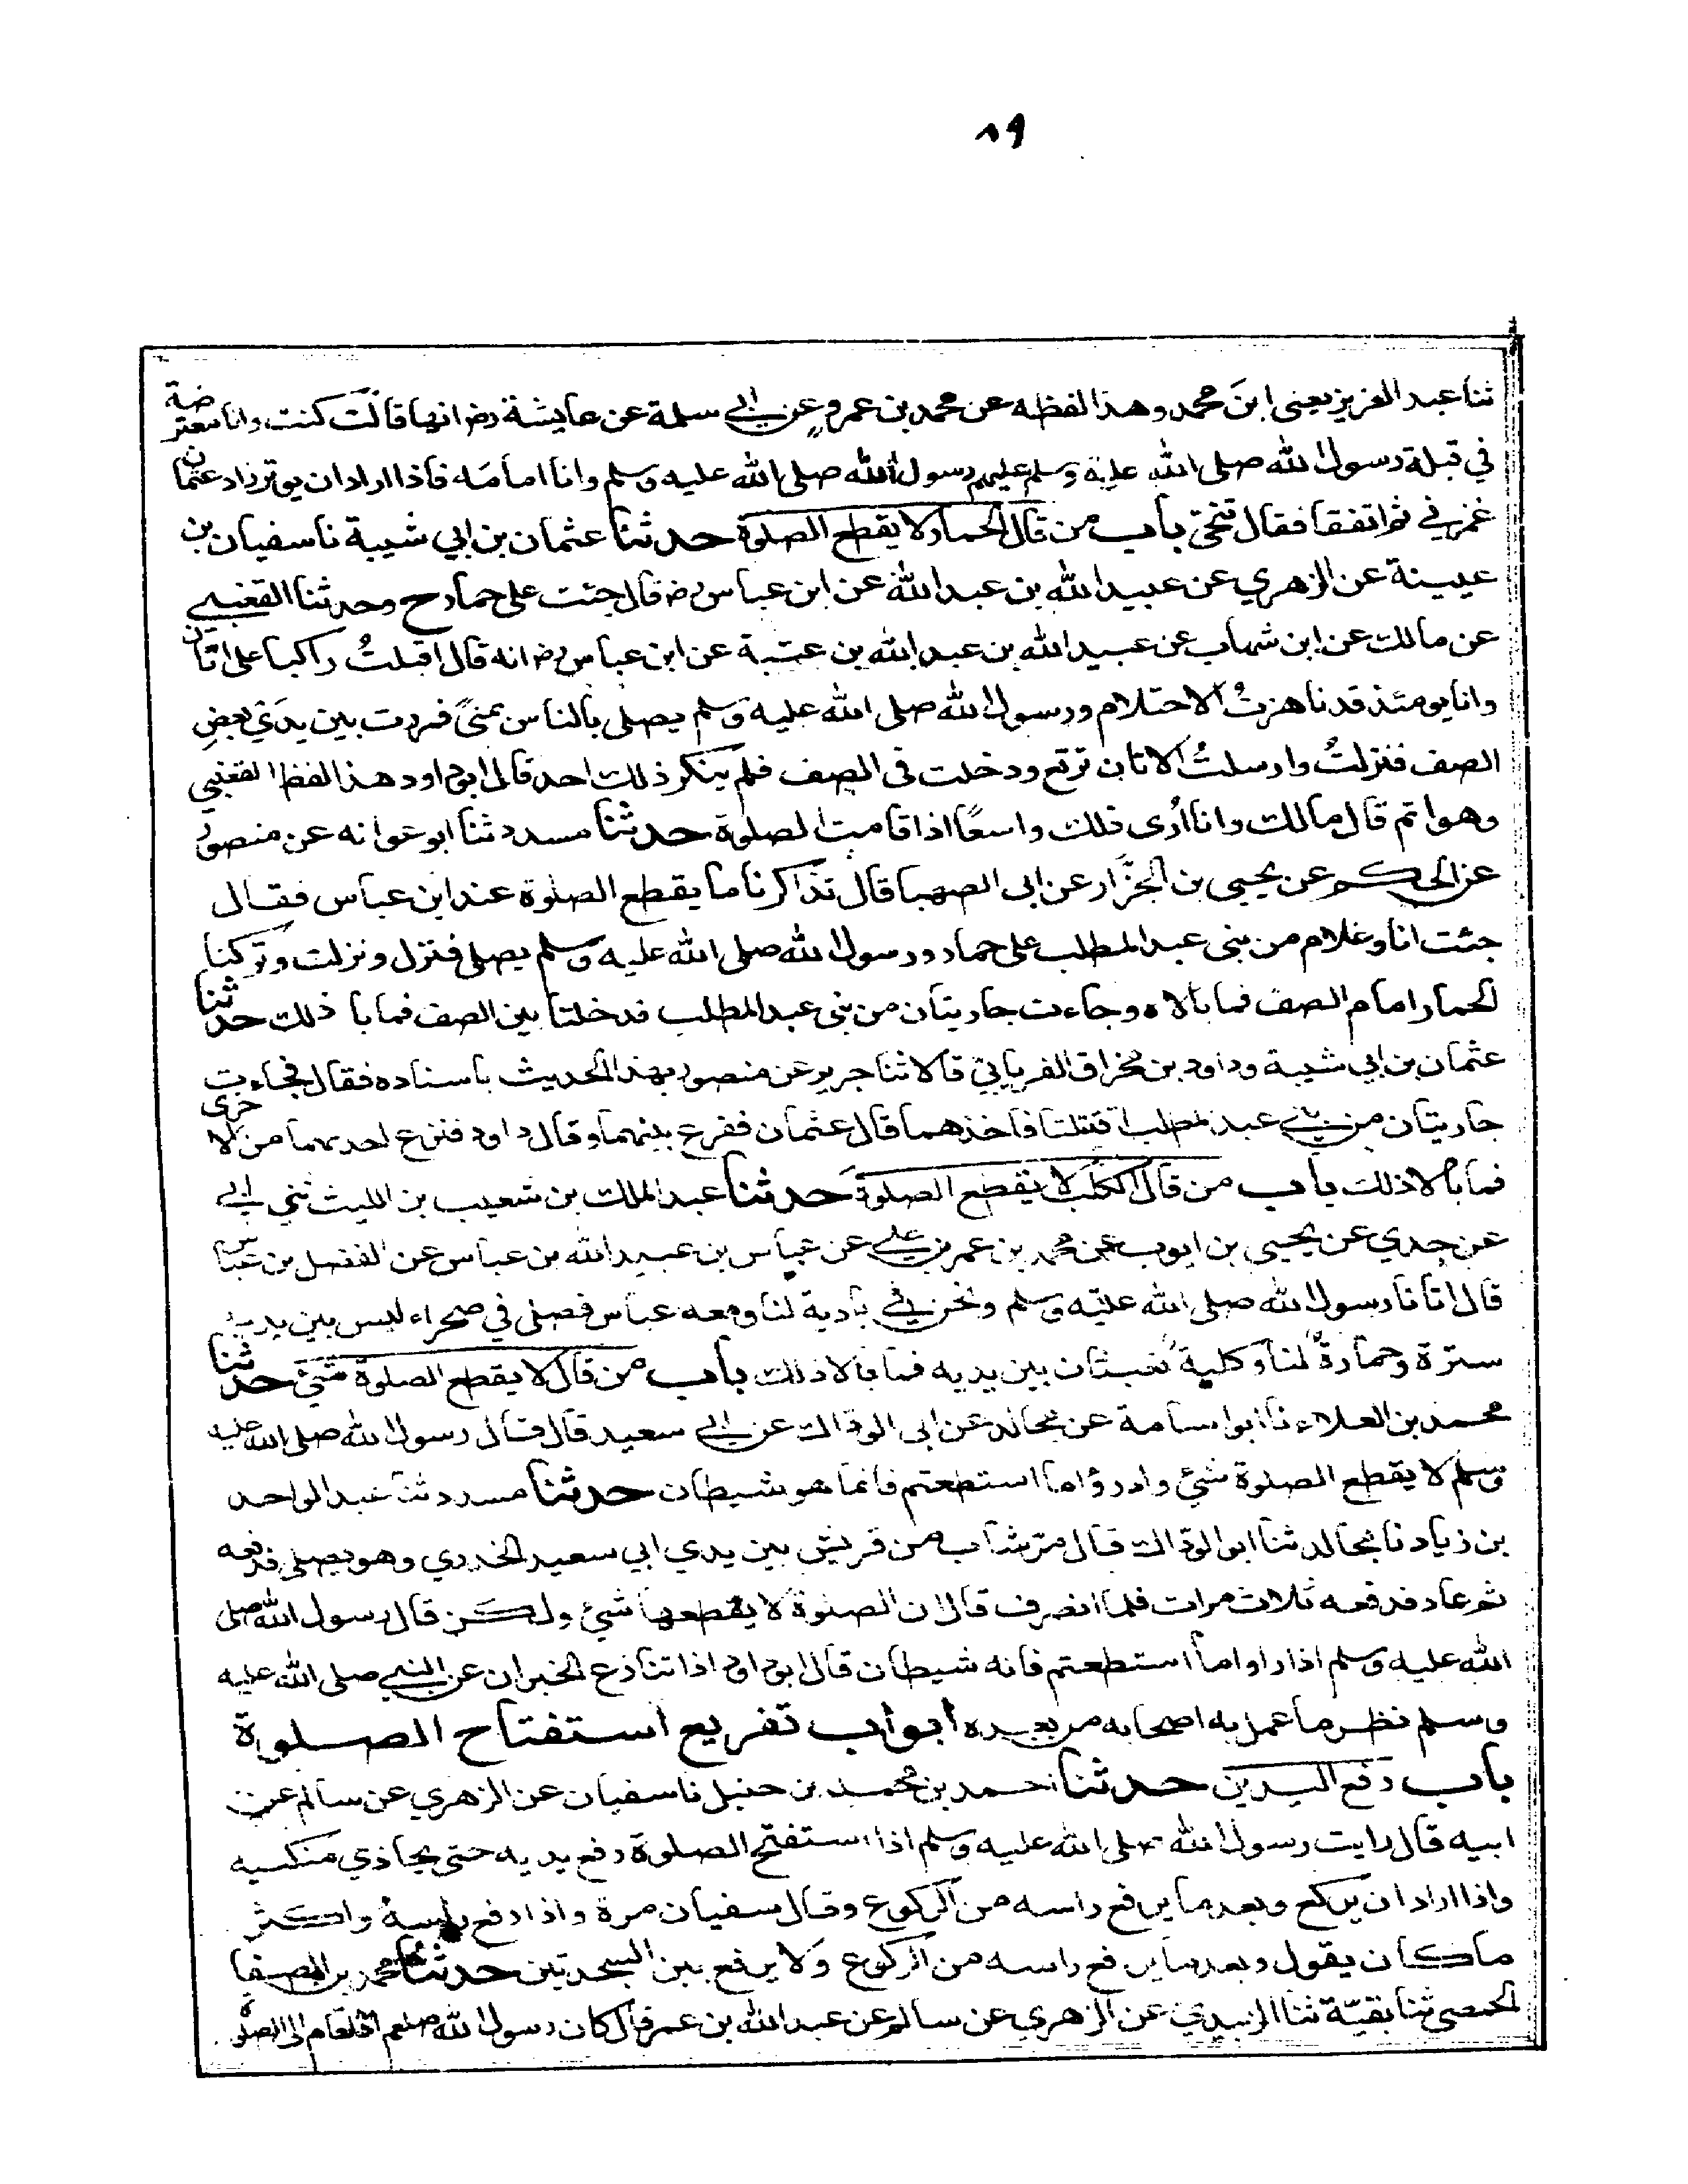 ٨٩
ثنا عبد العزيز يعني ابن محمد وهذا لفظه عن محمد بن عمرو عن ابي سلمة عن عايشة رض انها قالت كنت وانا معترضة
في قبلة رسول الله صلى الله عليه وسلم رسول الله صلى الله عليه وسلم وانا امامه فاذا اراد ان يوتر زاد عثمان
غمزني ثم اتفقا فقال تنحي باب من قال الحمار لا يقطع الصلوة حدثنا عثمان بن ابي شيبة نا سفيان بن
عيينة عن الزهري عن عبيد الله بن عبد الله عن ابن عباس رض قال جئت على حمار ح وحدثنا القعنبي
عن مالك عن ابن شهاب عن عبيد الله بن عبد الله بن عتبة عن ابن عباس رض انه قال اقبلت راكبا على اتان
وانا يومئذ قد ناهزت الاحتلام ورسول الله صلى الله عليه وسلم يصلى بالناس بمنى فمررت بين يدي بعض
الصف فنزلت وارسلت الاتان ترتع ودخلت في الصف فلم ينكر ذلك احد قال ابو داود هذا لفظ القعنبي
وهو اتم قال مالك وانا ارى ذلك واسعا اذا قامت الصلوة حدثنا مسدد ثنا ابو عوانه عن منصور
عن الحكم عن يحيى بن الجزار عن ابى الصهبا قال تذاكرنا ما يقطع الصلوة عند ابن عباس فقال
جئت انا وغلام من بنى عبد المطلب على حمار ورسول الله صلى الله عليه وسلم يصلى فنزل ونزلت وتركنا
الحمار امام الصف فما بالاه وجاءت جاريتان من بنى عبد المطلب فدخلتا بين الصف فما با ذلك حدثنا
عثمان بن ابي شيبة وداود بن مخراق الفريابي قالا ثنا جرير عن منصور بهذا الحديث باسناده فقال فجاءت
جاريتان من بني عبد المطلب اقتتلتا فاخذهما قال عثمان ففرع بينهما وقال داود فنزع احدىهما من الاخرى
فما بالا ذلك باب من قال الكلب لا يقطع الصلوة حدثنا عبد الملك بن شعيب بن الليث ثني ابي
عن جدي عن يحيى بن ايوب عن محمد بن عمر بن علي عن عباس بن عبيد الله بن عباس عن الفضل بن عباس
قال اتانا رسول الله صلى الله عليه وسلم ونحن في بادية لنا ومعه عباس فصلى في صحراء ليس بين يديه
سترة وحمارة لنا وكلبة تعبثان بين يديه فما بالا ذلك باب من قال لا يقطع الصلوة شئ حدثنا
محمد بن العلاء نا ابو اسامة عن مجالد عن ابى الوداك عن ابي سعيد قال قال رسول الله صلى الله عليه
وسلم لا يقطع الصلوة شئ وادرؤا ما استطعتم فانما هو شيطان حدثنا مسدد ثنا عبد الواحد
بن زياد نا مجالد ثنا ابو الوداك قال مر شاب من قريش بين يدي ابي سعيد الخدري وهو يصلى فدفعه
ثم عاد فدفعه ثلاث مرات فلما انصرف قال ان الصلوة لا يقطعها شئ ولكن قال رسول الله صلى
الله عليه وسلم اذا راوا ما استطعتم فانه شيطان قال ابو داود اذا تنازع الخبران عن النبي صلى الله عليه
وسلم نظر ما عمل به اصحابه من بعده ابواب تفريع استفتاح الصلوة
باب رفع اليدين حدثنا احمد بن محمد بن حنبل نا سفيان عن الزهري عن سالم عن
ابيه قال رايت رسول الله صلى الله عليه وسلم اذا استفتح الصلوة رفع يديه حتى يحاذي منكبيه
واذا اراد ان يركع وبعد ما يرفع راسه من الركوع وقال سفيان مرة واذا رفع راسه واكثر
ما كان يقول وبعد ما يرفع راسه من الركوع ولا يرفع بين السجدتين حدثنا محمد بن المصفى
الحمصي ثنا بقية ثنا الزبيدي عن الزهري عن سالم عن عبد الله بن عمر قال كان رسول الله صلعم اذا قام الى الصلوة